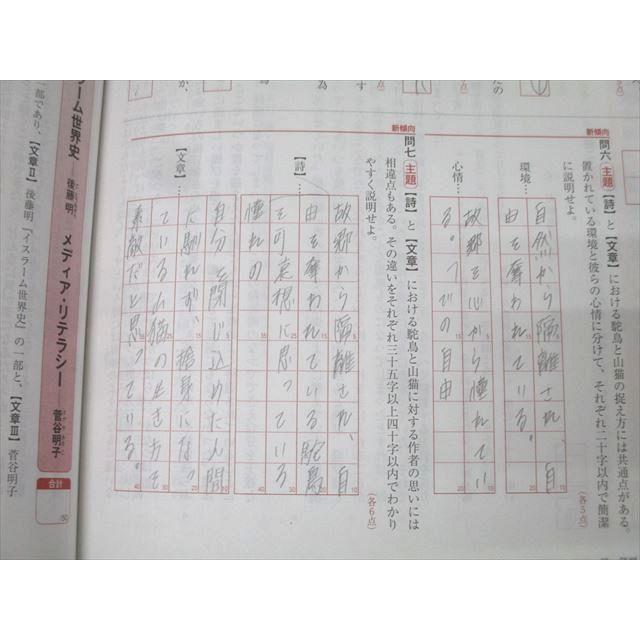 新傾向
問六 主題 【詩】と【文章】における駝鳥と山猫の捉え方には共通点がある。
置かれている環境と彼らの心情に分けて、それぞれ二十字以内で簡潔
に説明せよ。
(各5点)
環境…
自然から隔離され、自
由を奪われている。
心情…
故郷を心から憧れてい
る。
での自由
新傾向
問七 主題 【詩】と【文章】における駝鳥と山猫に対する作者の思いには
相違点もある。その違いをそれぞれ三十五字以上四十字以内でわかり
やすく説明せよ。
(各6点)
【詩】…
故郷から隔離され、自
由を奪われている駝鳥
を可哀想に思っている
憧れの
【文章】…
自分を閉じ込めた人間
に馴れず、捨身になっ
ている山猫の生き方を
素敵だと思っている。
ラーム世界史 ―後藤明 メディア・リテラシー ―菅谷明子
合計
50
一部であり、【文章Ⅱ】後藤明『イスラーム世界史』の一部と、【文章Ⅲ】菅谷明子